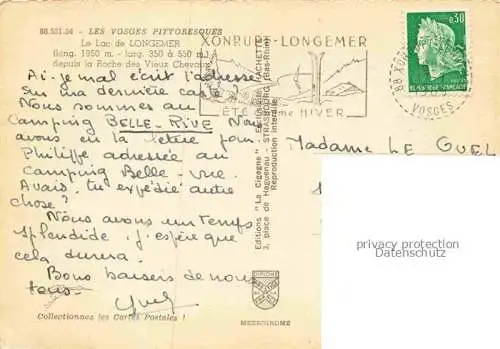 88.531.54 - LES VOSGES PITTORESQUES
Le Lac de LONGEMER
(long. 1950 m. - larg. 350 à 550 m.)
depuis la Roche des Vieux Chevaux
XONRUPT-LONGEMER
ÉTÉ HIVER
0,30
REPUBLIQUE FRANÇAISE
88 XO
VOSGES
Ai-je mal écrit l'adresse
sur ma dernière carte ?
Nous sommes au
Camping BELLE-RIVE Nous
avons eu la lettre pour
Philippe adressée au
Camping Belle-vue.
Avais-tu expédié autre
chose ?
Nous avons un temps
splendide. J'espère que
cela durera.
Bons baisers de nous
tous.
Madame LE GUEL
Editions "La Cigogne" - HACHETTE
3, place de Haguenau - STRASBOURG (Bas-Rhin)
Reproduction interdite
privacy protection
Datenschutz
Collectionnez les Cartes Postales !
MEXICHROME